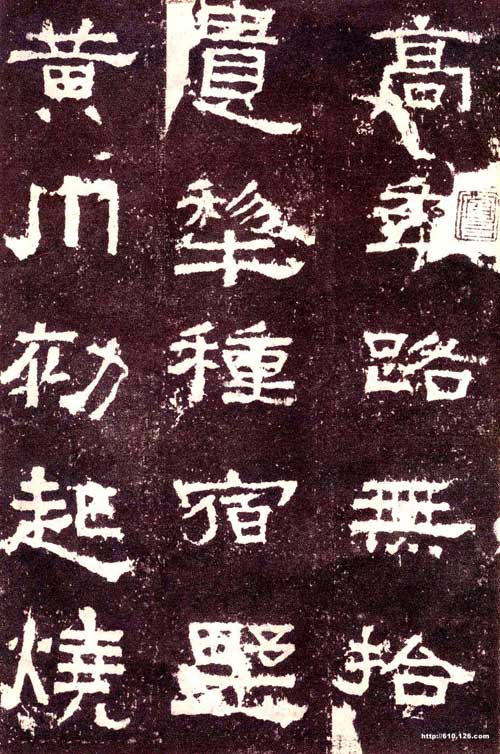 高年路無拾
遺犂種宿野
黄巾初起燒
http://610.126.com